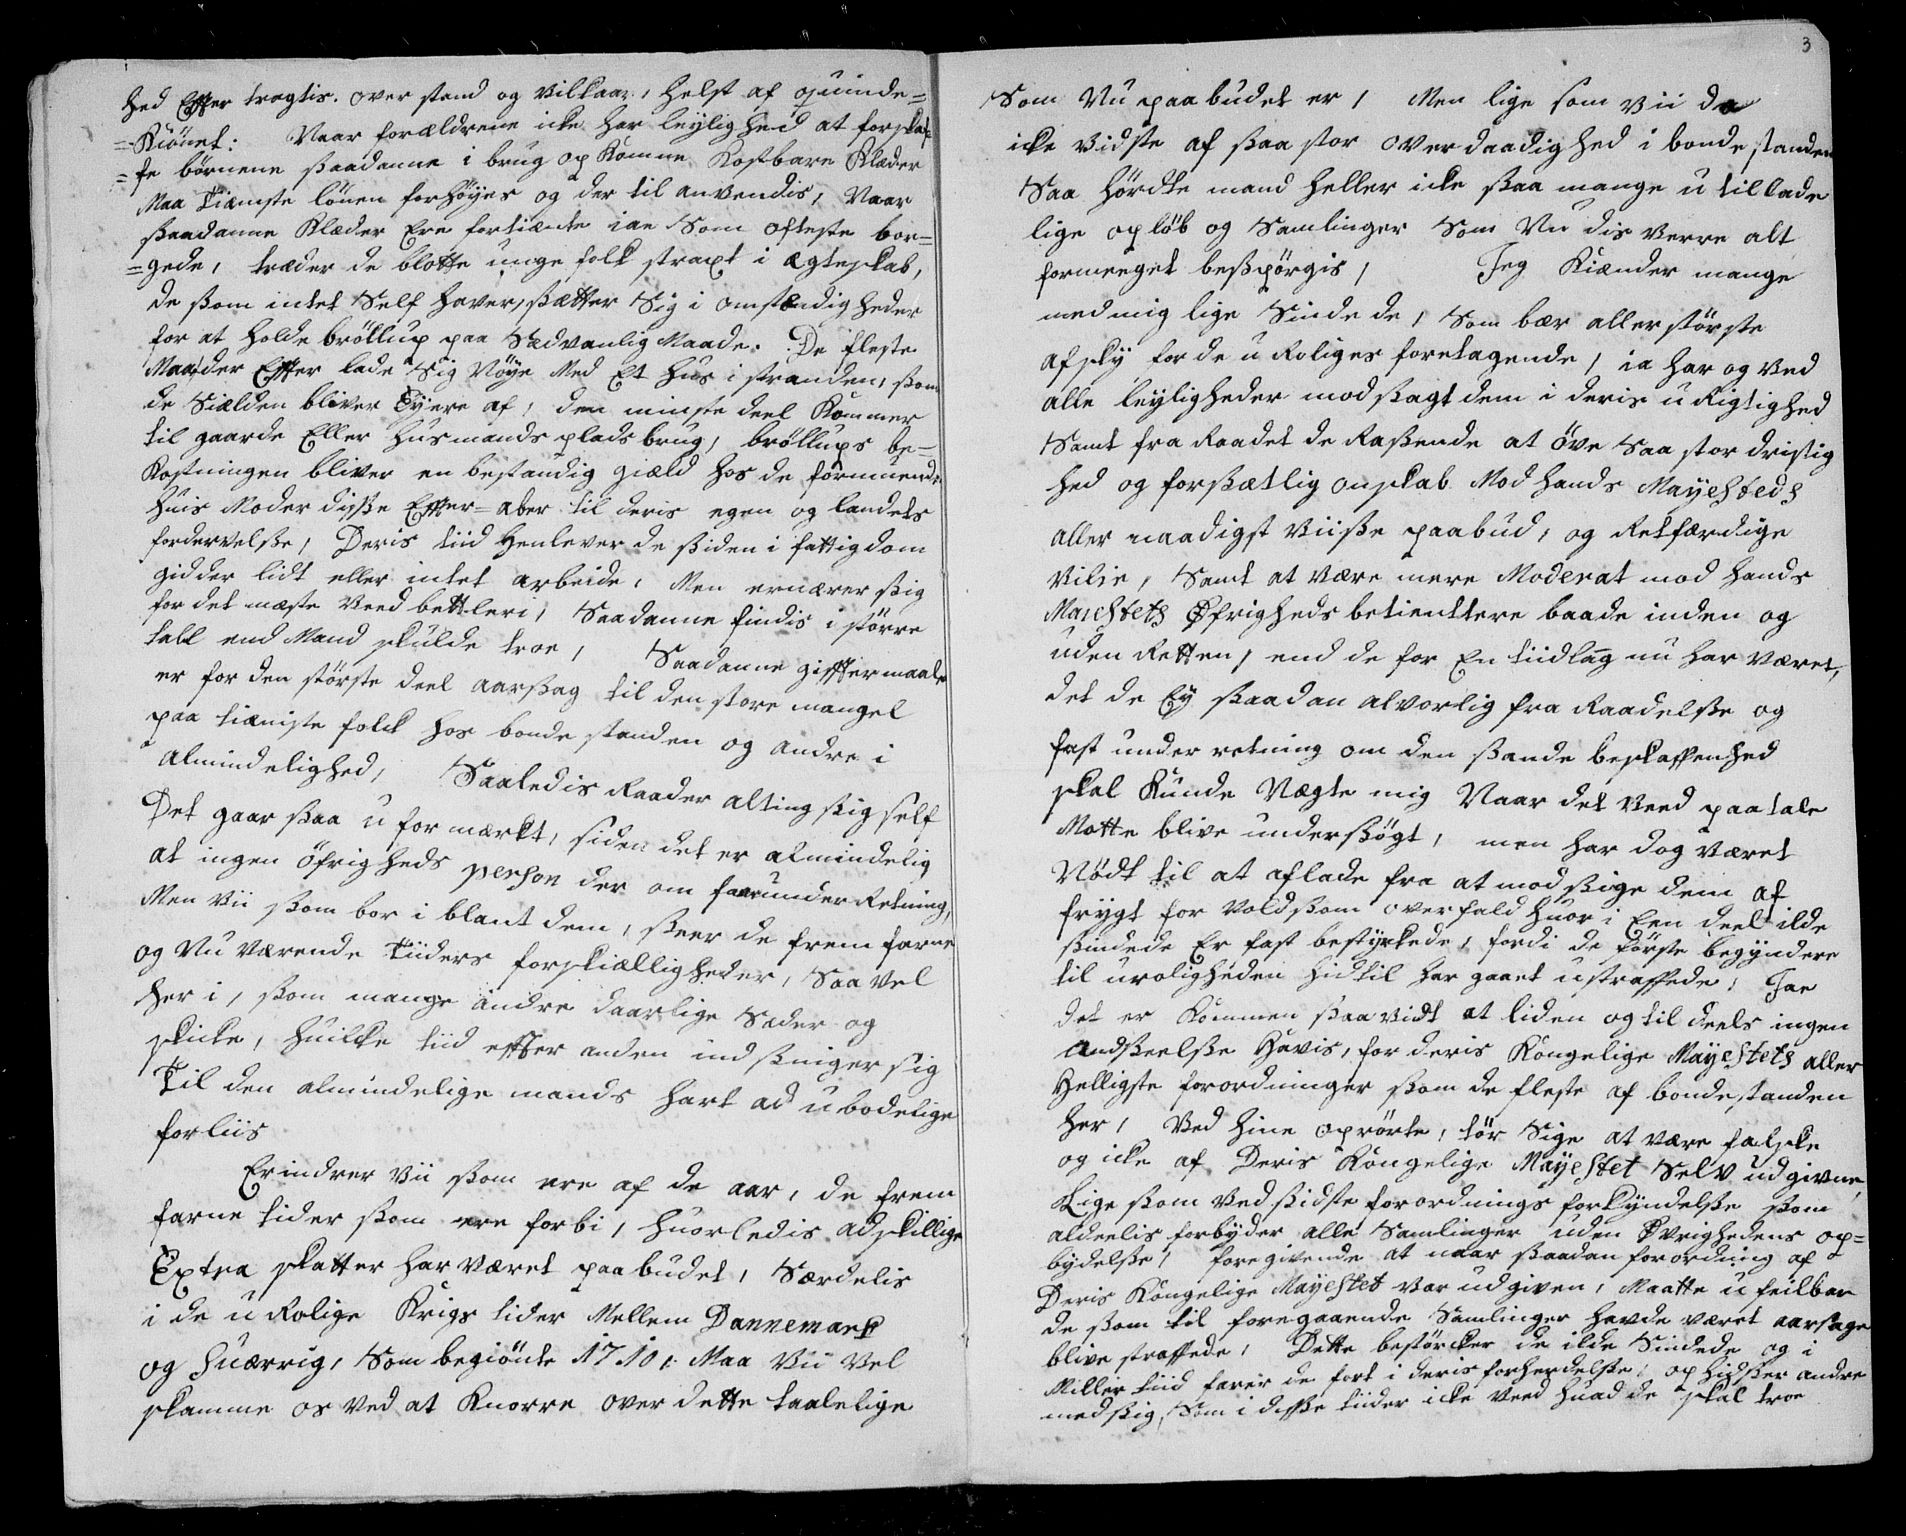 hed Effter tragtis. over stand og vilkaar, helst af quinde=
=Kiönet: Naar forældrene icke har leylighed at forskaf
=fe börnene saadanne i brug op Komne Kostbare Klæder
Maa Tiæniste lönen forhöyes og der til anvendis, Naar
ßaadanne Klæder Ere fortiænte iae Som ofteste bor=
=gede, træder de blotte unge folk straxt i ægteskab,
de ßom intet Self haver, ßætter Sig i omstændigheder
for at holde bröllup paa Sædvanlig Maade. De fleste
Maa der Effter lade Sig Nöye Med Et huus i stranden, ßom
de Siælden bliver Eyere af, den minste deel Kommer
til gaarde Eller huusmands plads brug, bröllups be=
Kostningen bliver en bestandig giæld hos de formuende
huis Moder diße Effter=aber til deris egen og landets
fordervelße, Deris tiid henlever de ßiden i fattigdom
gidder lidt eller intet arbeide, Men ernærer ßig
for det mæste Veed bettleri, Saadanne findis i större
tall end Mand skulde troe, Saadanne gifftermaale
er for den störste deel aarßag til den store mangel
paa tiæniste folck hos bonde standen og andre i
almindelighed, Saaledis Raader alting ßig self
Det gaar ßaa u formærkt, siden det er almindelig
at ingen öfrigheds person der om faar under Retning,
Men vii ßom bor i blant dem, ßeer de frem farne
og Nu værende Tiiders forskiælligheder, Saa vel
her i, ßom mange andre daarlige Sæder og
skicke, huilcke tiid effter anden ind ßniger sig
Til den almindelige mands hart ad u bodelige
forliis
Erindrer vii ßom ere af de aar, de frem
farne tider ßom ere forbi, huorledis adskillige
Extra skatter har været paabudet, Særdelis
i de u Rolige Krigs tider Mellem Dannemark
og Suærrig, Som begiönte 1710, Maa vii vel
skamme os ved at Knorre over dette taalelige
3
Som Nu paabudet er, Men lige som vii da
icke vidste af ßaa stor overdaadighed i bonde standen
Saa hördte mand heller icke ßaa mange u tillade
lige opløb og Samlinger Som Nu dis verre alt
formeeget beßpörgis, Jeg Kiænder mange
med mig lige Sinde de, Som bær aller störste
afsky for de u Roliges foretagende, ia har og ved
alle leyligheder mod ßagt dem i deris u Rigtighed
Samt fra Raadet de Raßende at öve Saa stor dristig
hed og forßætlig onskab Mod hands Mayesteds
aller naadigst viiße paabud, og Retfærdige
vilie, Samt at være mere Moderat mod hands
Maiestets Øfrigheds betienttere baade inden og
uden Retten, end de for En tiidlang nu har været,
det de Ey ßaadan alvorlig fra Raadelße og
fast under retning om den ßande beskaffenhed
skal Kunde Nægte mig Naar det Veed paatale
Motte blive underßögt, men har dog været
Nödt til at aflade fra at mod ßige dem af
frygt for voldßom overfald huor i Een deel ilde
ßindede Er fast bestyrkede, fordi de förste begyndere
til uroligheden hidtil har gaaet ustraffede, Jae
det er Kommen ßaa vidt at liden og til deels ingen
Andßeelße Havis, for deris Kongelige Mayestets aller
Helligste forordninger ßom de fleste af bondestanden
her, ved hine oprörte, tör Sige at være falske
og icke af Deris Kongelige Mayestet Selv udgivne,
Lige ßom ved ßidste forordnings forkyndelße ßom
aldeelis forbyder alle Samlinger uden Øvrighedens op=
bydelße, foregivende at naar ßaadan forordning af
Deris Kongelige Mayestet var udgiven, Maatte u feilbar
de ßom til foregaaende Samlinger havde været aarsage
blive straffede, Dette bestörcker de ilde Sindede og i
Miller tiid farer de fort i deris forherdelße, op hidßer andre
med ßig, Som i diße tiider icke veed huad de skal troe